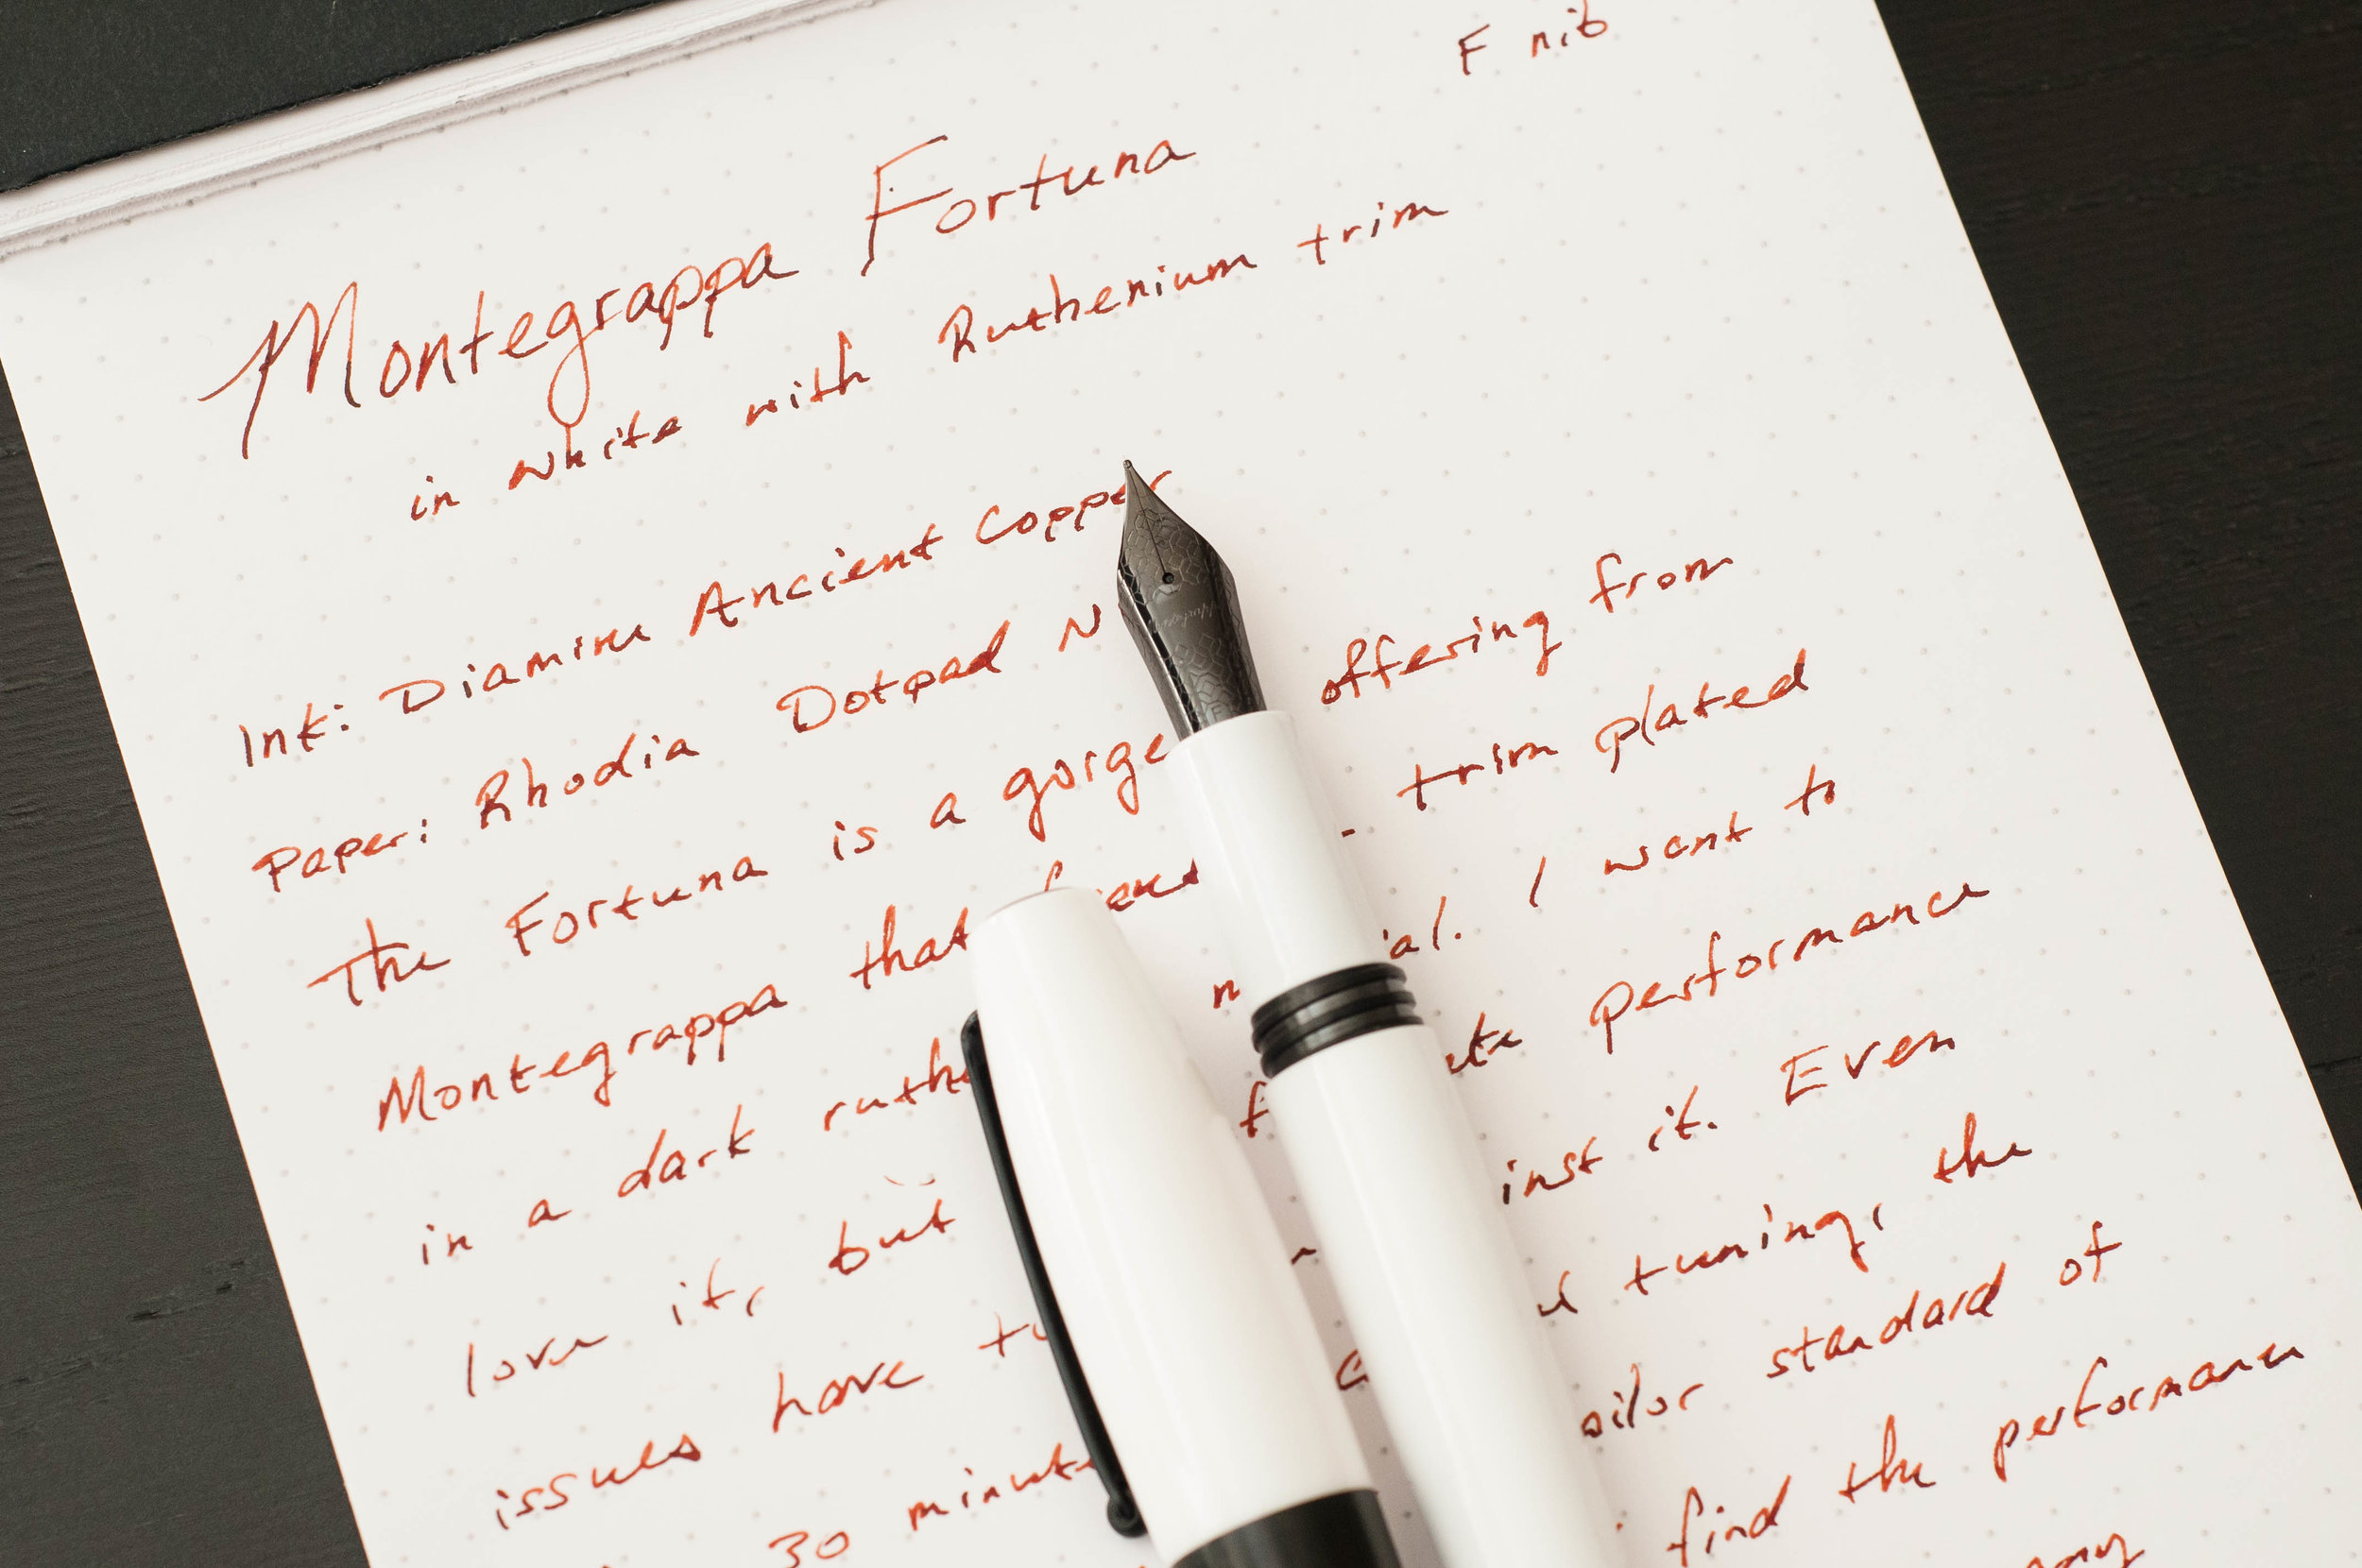 F nib
Montegrappa Fortuna
in white with Ruthenium trim
Ink: Diamine Ancient Copper
Paper: Rhodia Dotpad N
The Fortuna is a gorge offering from
Montegrappa that trim plated
in a dark ruthe ial. I want to
love it, but performance
issues have inst it. Even
30 minute tuning, the
ailor standard of
find the performance